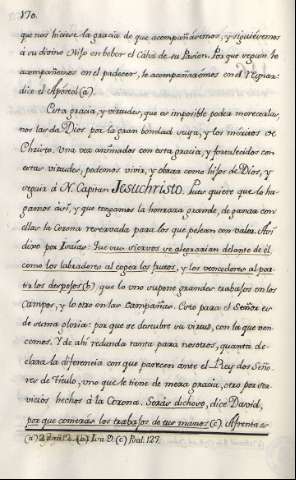 170.
que nos hiciese la gracia de que acompañasemos, y siguiesemos
a su divino Hijo en beber el Caliz de su Pasion. Por que segun le
acompañamos en el padecer, le acompañaremos en el Reynar
dice el Apostol (a).
Esta gracia, y virtudes, que es imposible poder merecerlas
nos las da Dios por la gran bondad suya, y los meritos de
Christo. Una vez animados con esta gracia, y fortalecidos con
estas virtudes, podemos vivir, y obrar como hijos de Dios, y
seguir á N. Capitan Jesuchristo. Pues quiere que lo ha-
gamos asi, y que tengamos la honrra grande, de ganar con
ellas la Corona reservada para los que pelean con valor. Asi
dixo por Isaias: Que sus siervos se alegrarian delante de él,
como los labradores al coger los frutos, y los vencedores al par-
tir los despojos (b) que lo uno supone grandes trabajos en los
campos, y lo otro en las campañas. Esto para el Señor es
de suma gloria: por que se descubre su virtud, con la que ven-
cemos. Y de ahi redunda tanta para nosotros, quanta de-
clara la diferencia con que parecen ante el Rey dos Seño-
res de Titulo, uno que le tiene de mera gracia, otro por ser-
vicios hechos á la Corona. Serás dichoso, dice David,
por que comerás los trabajos de tus manos (c). Afrenta es
(a) 2. (b) Is. 9. (c) Psal. 127.